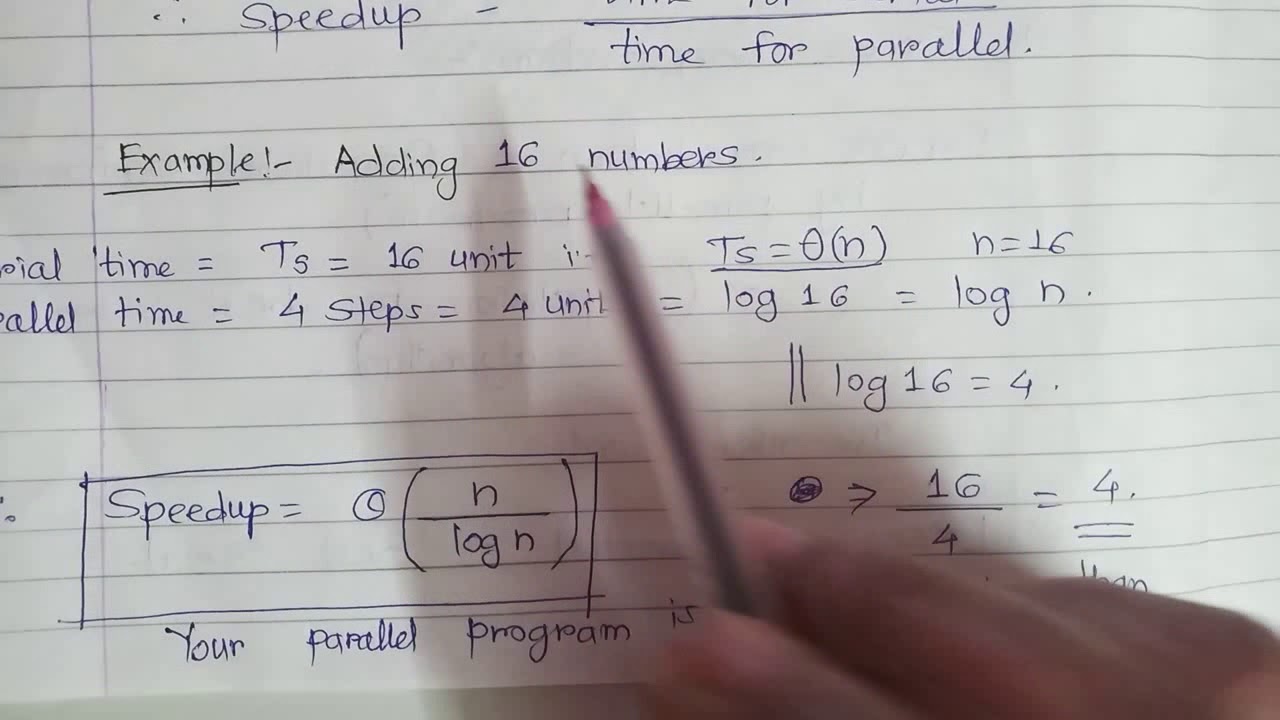 ∴ Speedup =
time for parallel.
Example:- Adding 16 numbers.
time = Ts = 16 unit Ts = θ(n) n=16
time = 4 Steps = 4 unit = log 16 = log n.
|| log 16 = 4.
Speedup = θ(n / log n) ⇒ 16 / 4 = 4.
than
Your parallel program is